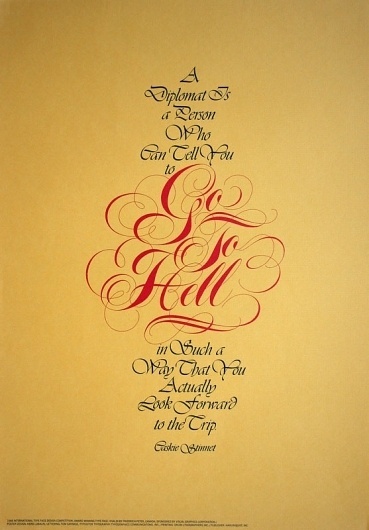 A
Diplomat Is
a Person
Who
Can Tell You
to
Go
To
Hell
in Such a
Way That You
Actually
Look Forward
to the Trip
Caskie Stinnet